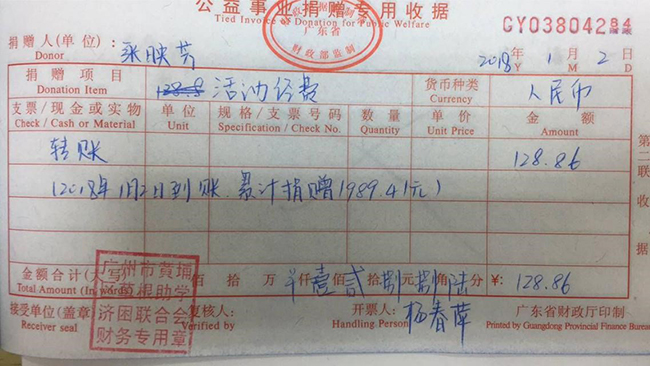 公益事业捐赠专用收据
Tied Invoice of Donation for Public Welfare
广东省
财政部监制
GY03804284
捐赠人(单位): 张映芳
Donor
2018年 1月 2日
Y M D
捐赠项目 活动经费 货币种类 人民币
Donation Item Currency
支票/现金或实物 单位 规格/支票号码 数量 单价 金额
Check / Cash or Material Unit Specification / Check No. Quantity Unit Price Amount
转账 128.86
(2018年1月2日到账.累计捐赠1989.41元)
第二联 收据
金额合计(大写) 佰 拾 万 仟壹佰贰拾捌元捌角陆分 ¥: 128.86
Total Amount (In words)
广州市黄埔
区菌根助学
济困联合会
财务专用章
接受单位(盖章) 复核人: 开票人: 杨春萍 广东省财政厅印制
Receiver seal Verified by Handling Person: Printed by Guangdong Provincial Finance Bureau